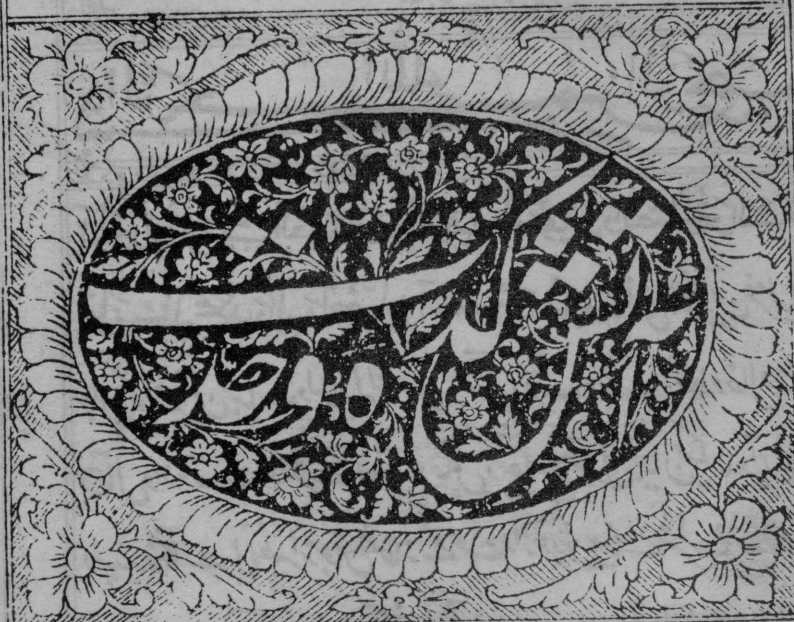 آتشکده وحدت